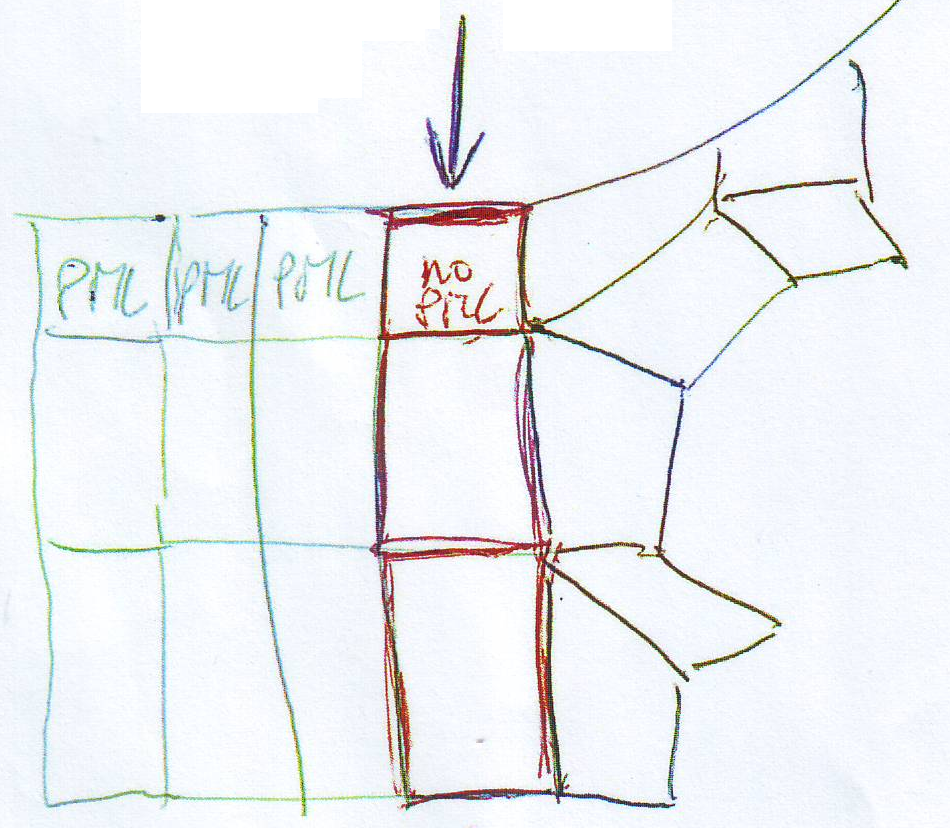 PML PML PML
no
PML